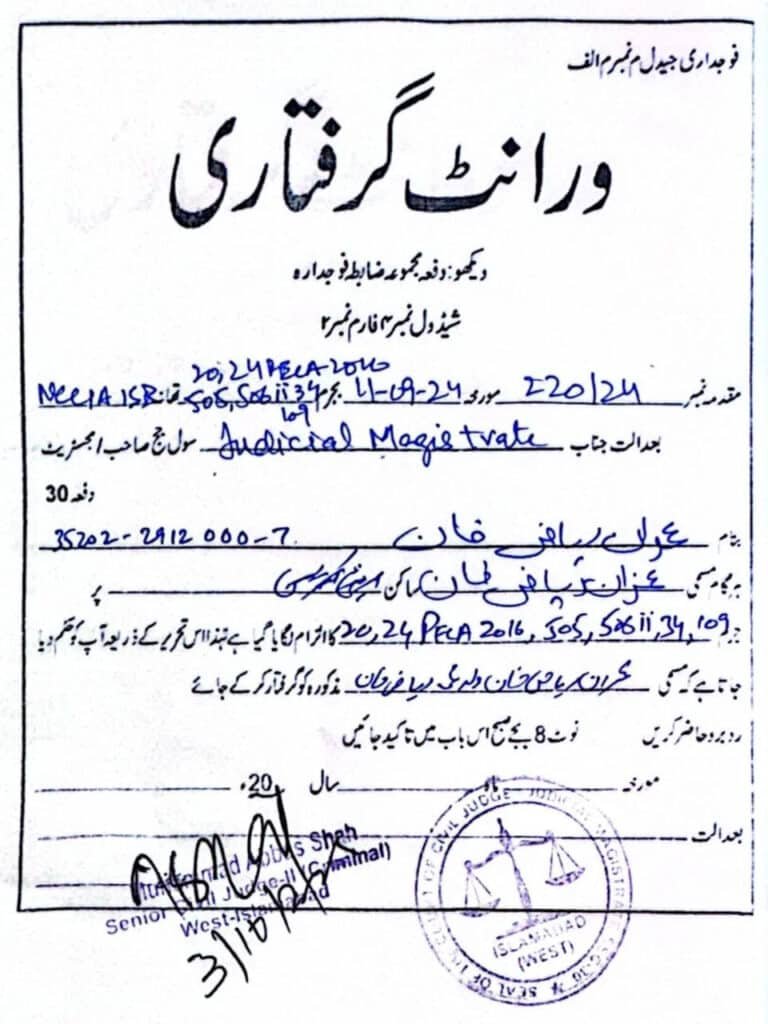 فوجداری جیدل م نمبر م الف
ورانٹ گرفتاری
دیکھو: دفعہ مجموعہ ضابطہ فوجدارہ
شیڈول نمبر ۴ فارم نمبر ۲
20, 24 PECA 2016
مقدمہ نمبر 220/24 مورخہ 11-09-24 بجرم 505, 506 ii 34 تھانہ NCCIA ISB
109
بعدالت جناب Judicial Magistrate سول جج صاحب
دفعہ 30
بنام عمران ریاض خان 35202-2912000-7
ہرگام مسمی عمران ریاض خان ساکن پر
جرم 20, 24 PECA 2016, 505, 506 ii, 34, 109 کا الزام لگایا گیا ہے لہٰذا اس تحریر کے ذریعہ آپ کو حکم دیا
جاتا ہے کہ مسمی عمران ریاض خان ولد ریاض خان مذکورہ کو گرفتار کر کے جائے
روبرو حاضر کریں نوٹ 8 بجے صبح اس باب میں تاکید جانیں
مورخہ ماہ سال 20ء
بعدالت
Muhammad Abbas Shah
Senior Civil Judge-II (Criminal)
West-Islamabad
3/10/
SEAL OF THE COURT OF CIVIL JUDGE JUDICIAL MAGISTRATE
ISLAMABAD
(WEST)